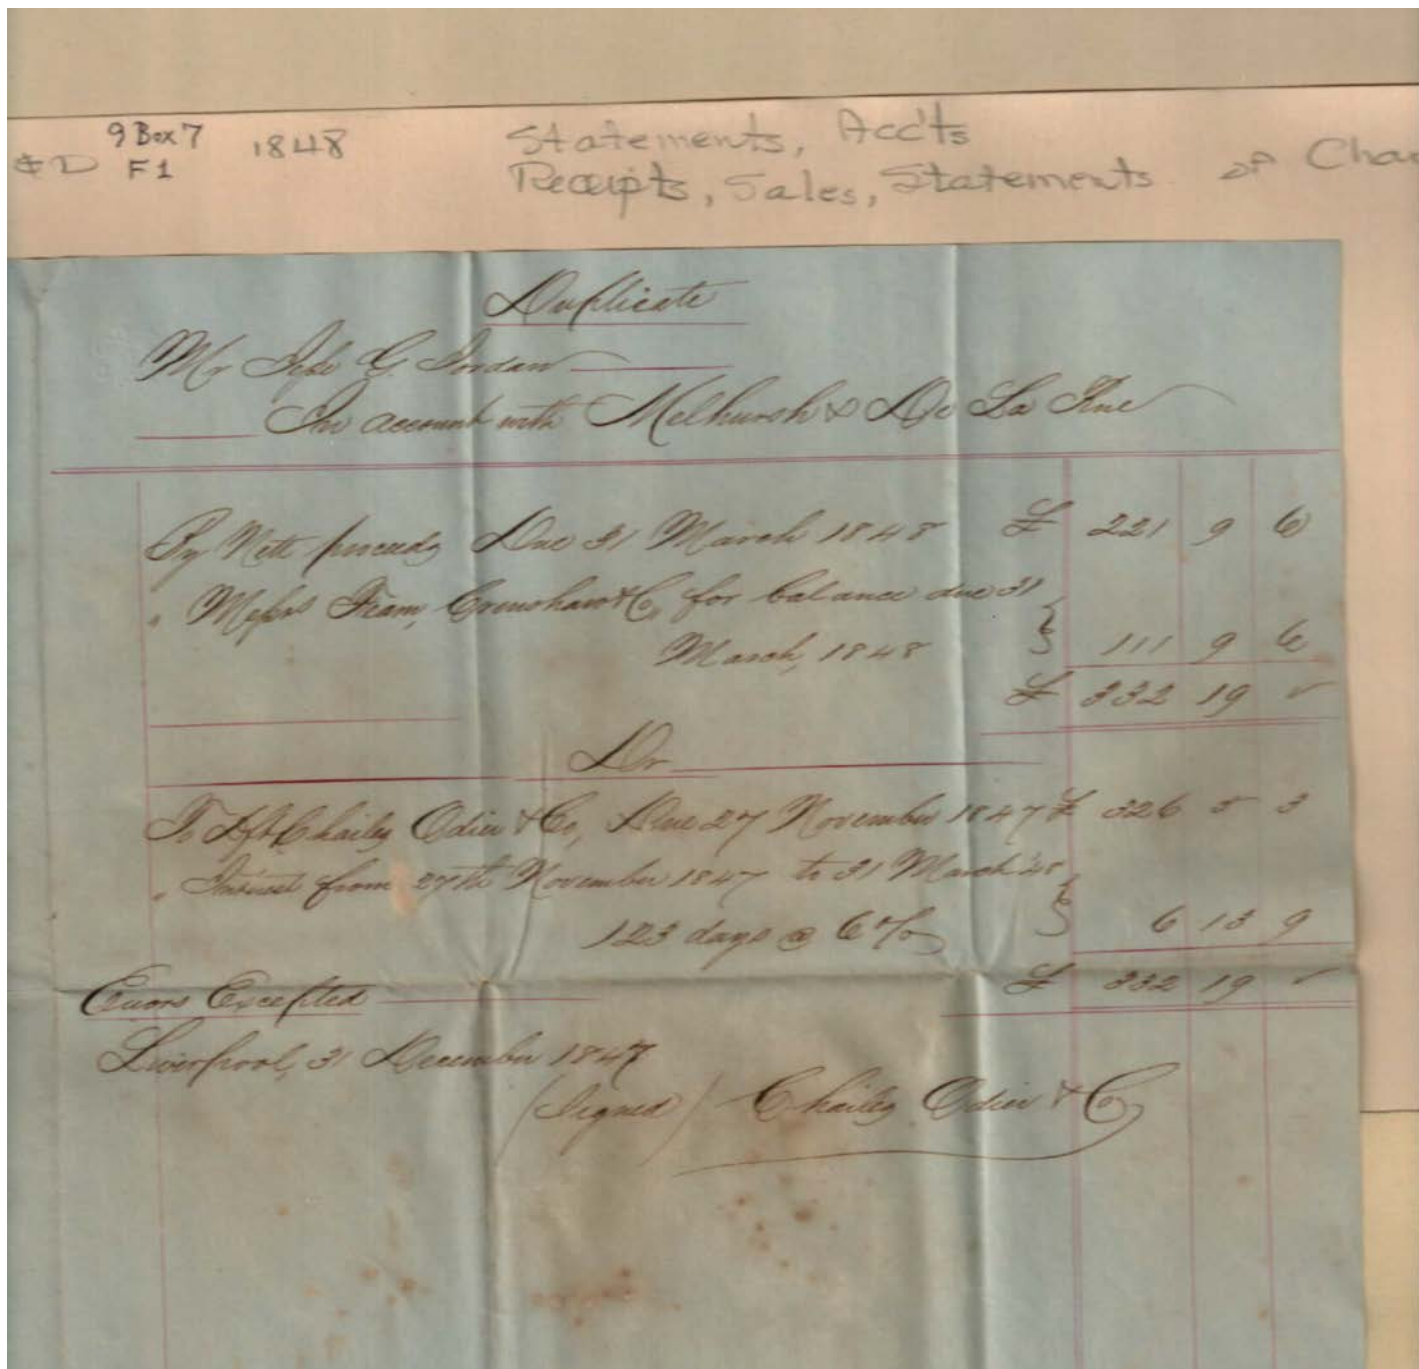 9 Box 7 1848 Statements, Acc'ts
& D F1 Receipts, Sales, Statements of Cha
Duplicate
Mr G. Jordan
In account with Melhuish & De La Rue
By Nett proceeds Due 31 March 1848 £ 221 9 6
" Messrs Fearn, Crenshaw & Co, for balance due 31
March, 1848 111 9 6
£ 332 19 "
Dr
To Chailey Odier & Co, Due 27 November 1847 £ 326 5 3
" Interest from 27th November 1847 to 31 March '48
123 days @ 6 % 6 13 9
£ 332 19 "
Errors Excepted
Liverpool, 31 December 1847
(Signed) Chailey Odier & Co